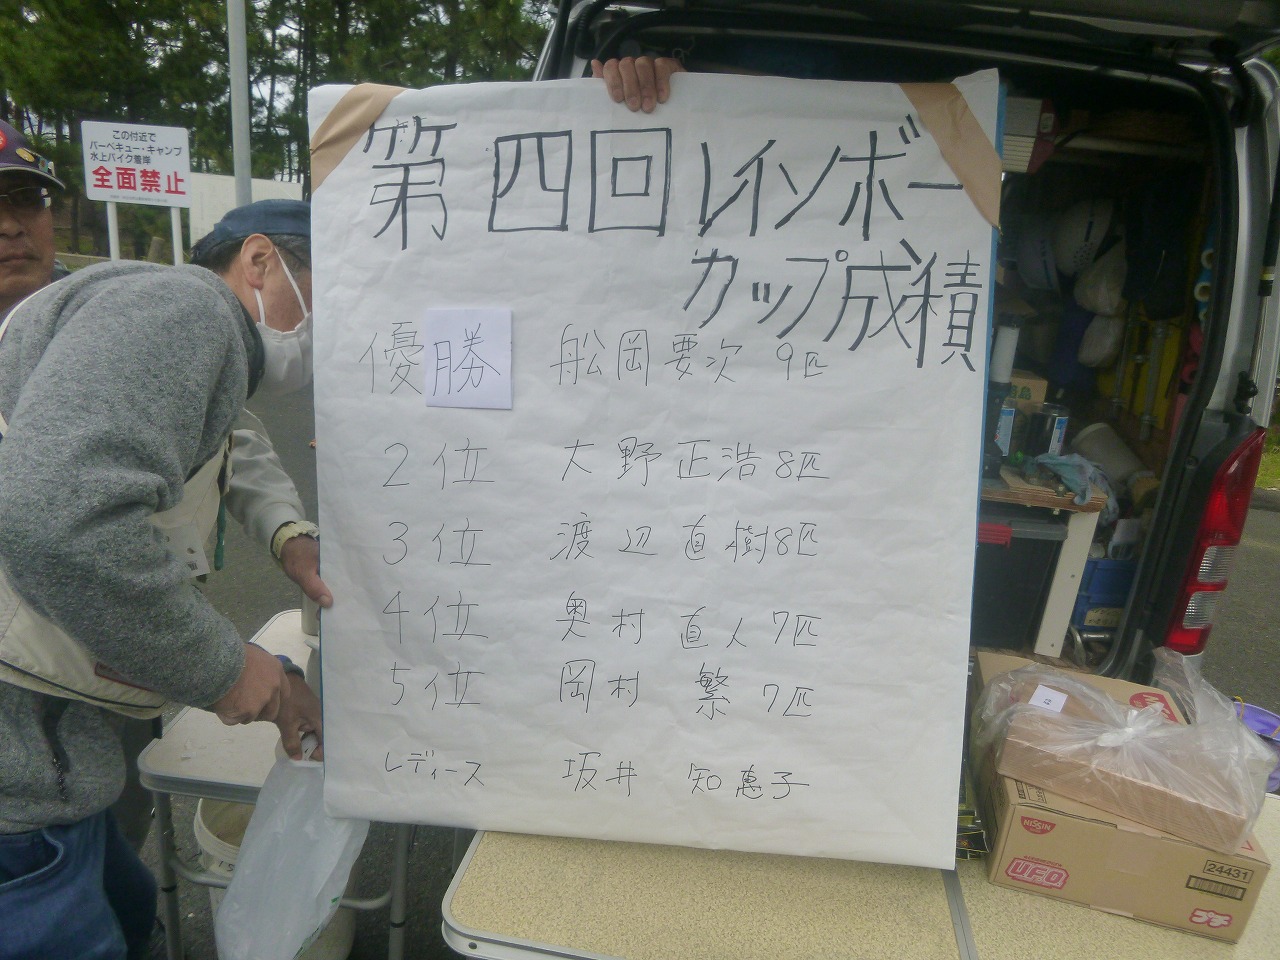 この付近で
バーベキュー・キャンプ
水上バイク着岸
全面禁止
第四回レインボー
カップ成績
優勝 船岡要次 9匹
2位 大野正浩 8匹
3位 渡辺直樹 8匹
4位 奥村直人 7匹
5位 岡村繁 7匹
レディース 坂井知恵子
NISSIN
U.F.O.
24431
プチ